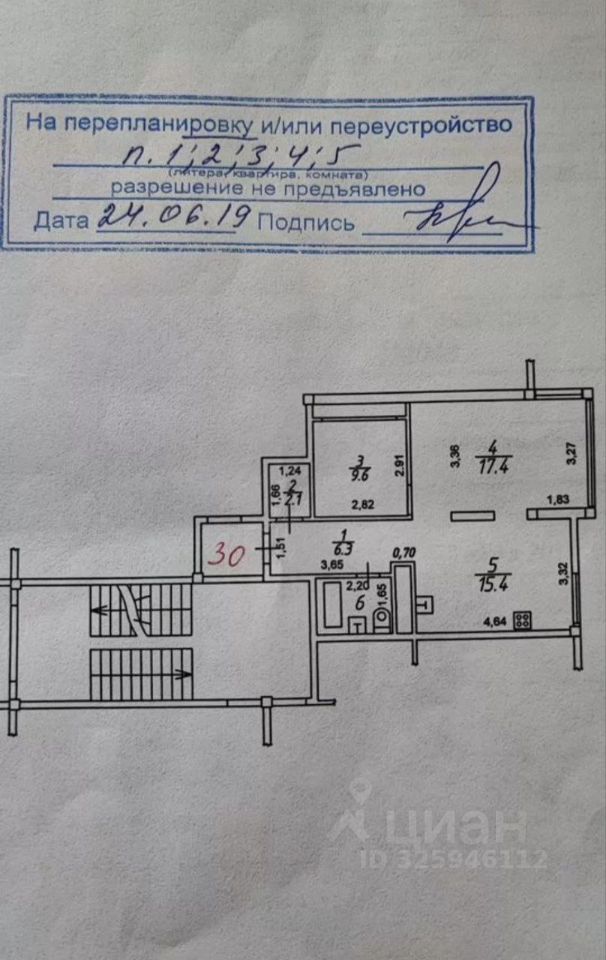 На перепланировку и/или переустройство
п. 1; 2; 3; 4; 5
(литера, квартира, комната)
разрешение не предъявлено
Дата 24.06.19 Подпись
3,36
4
17.4
3,27
1,83
3
9.6
2,91
2,82
1,24
1,66
2
2.1
30
1,51
1
6.3
3,65
0,70
5
15.4
3,32
4,64
2,20
6
1,65
циан
ID 325946112